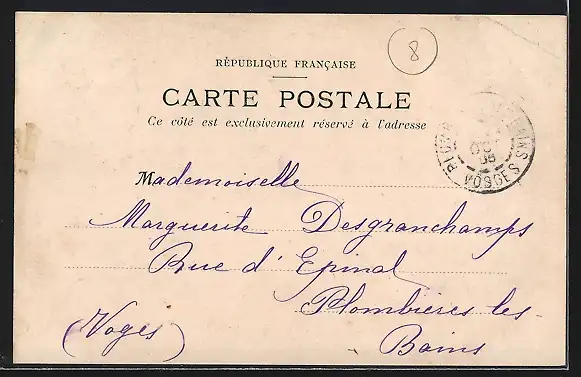 8
RÉPUBLIQUE FRANÇAISE
CARTE POSTALE
Ce côté est exclusivement réservé à l'adresse
VOSGES
Mademoiselle
Marguerite Desgranchamps
Rue d'Epinal
Plombières les-
Bains
(Voges)